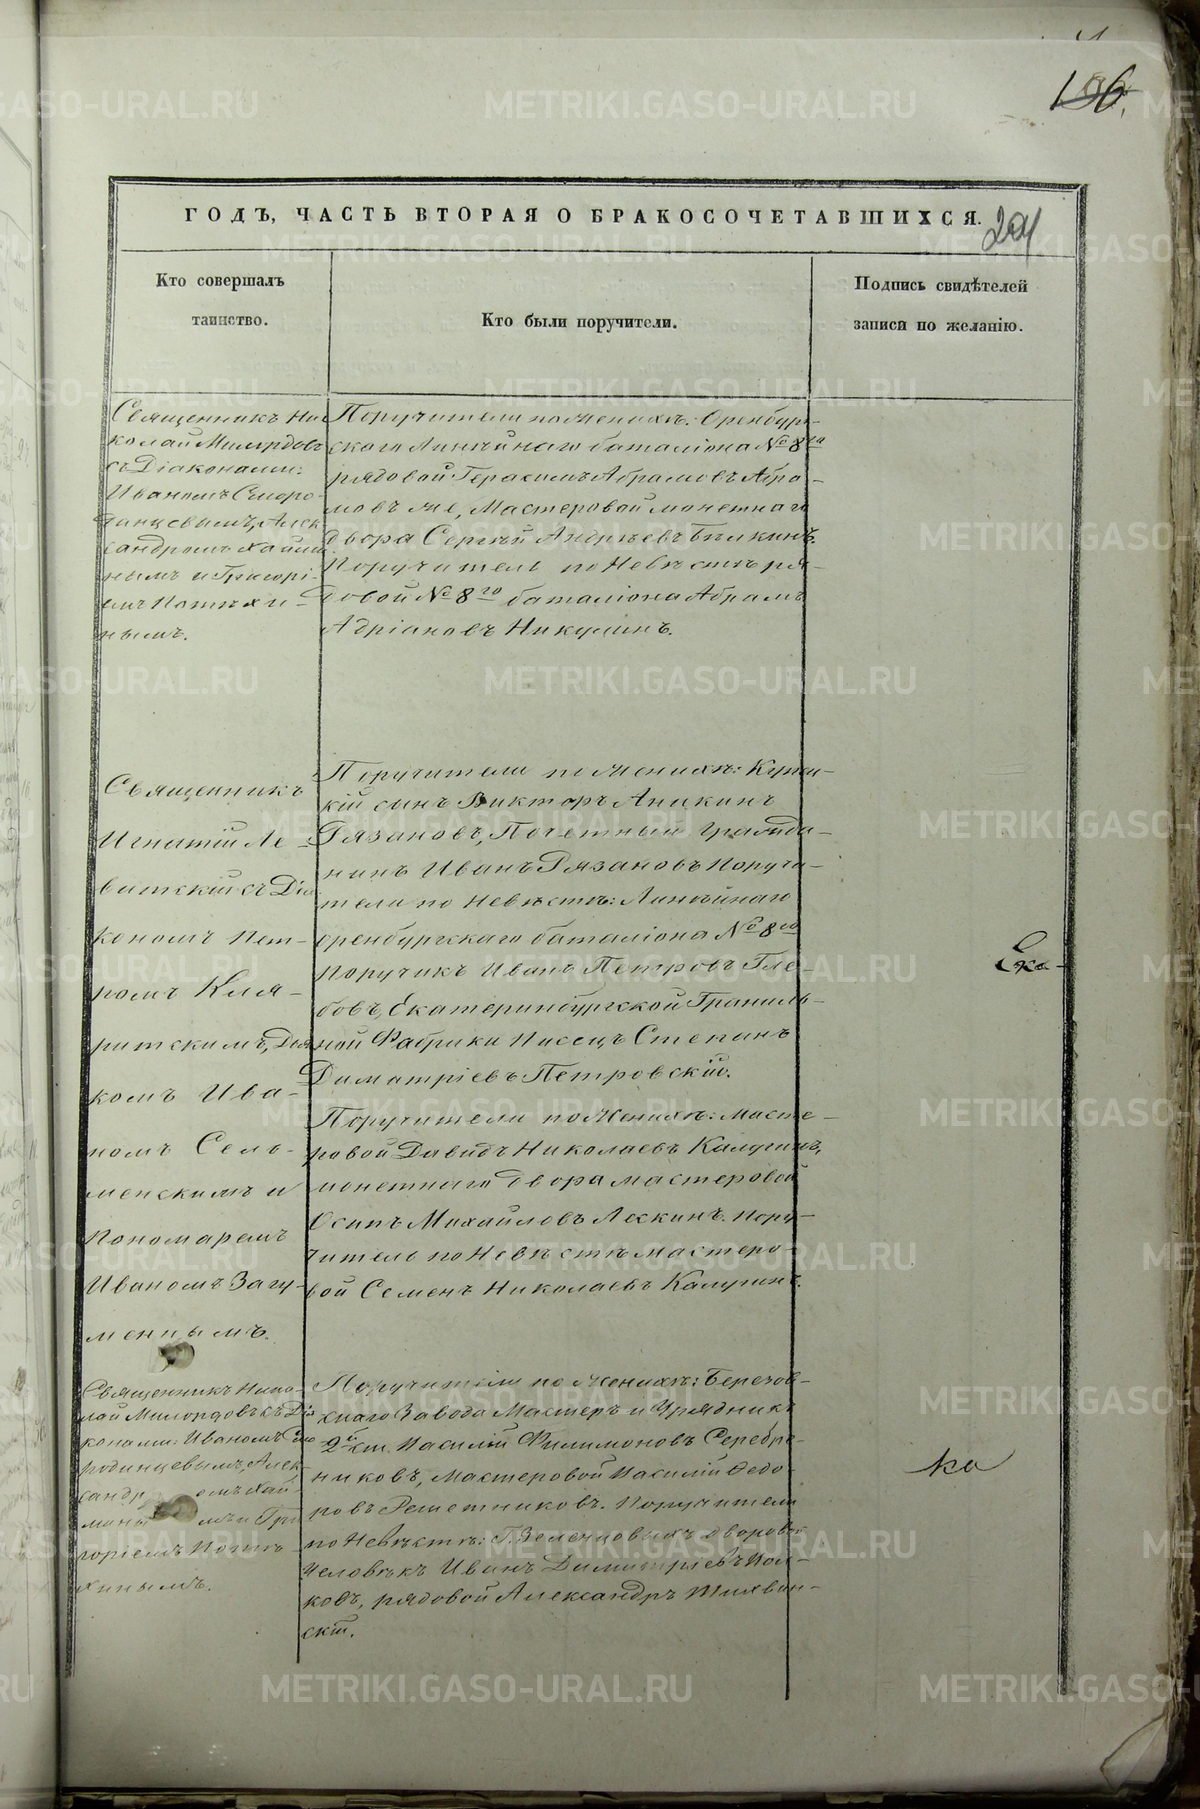 156.
ГОДЪ, ЧАСТЬ ВТОРАЯ О БРАКОСОЧЕТАВШИХСЯ.
204
Кто совершалъ
таинство.
Кто были поручители.
Подпись свидѣтелей
записи по желанію.
Священникъ Ни-
колай Милордовъ
съ Діаконами:
Иваномъ Сморо-
динцевымъ, Алек
сандромъ Хайми
нымъ и Григорі-
емъ Потѣхи-
нымъ.
Поручители по Женихѣ: Оренбург-
скаго Линѣйнаго баталіона № 8го
рядовой Герасимъ Абрамовъ Абра-
мовъ же, Мастеровой монетнаго
двора Сергѣй Андрѣевъ Былкинъ.
Поручитель по Невѣстѣ ря-
довой № 8го баталіона Абрамъ
Адріановъ Никулинъ.
Священникъ
Игнатій Ле-
витскій съ Діа
кономъ Пет-
ромъ Кля-
ритскимъ, Дья
комъ Ива-
номъ Сель-
менскимъ и
Пономаремъ
Иваномъ Загу-
меннымъ.
Поручители по Женихѣ: Купече-
кій сынъ Викторъ Аникинъ
Рязановъ, Почетный Гражда-
нинъ Иванъ Рязановъ Поручи-
тели по Невѣстѣ: Линѣйнаго
оренбургскаго баталіона № 8го
Поручикъ Иванъ Петровъ Глѣ-
бовъ, Екатеринбургской Граниль-
ной Фабрики Писецъ Степанъ
Диматріевъ Петровскій.
Ека-
Поручители по Женихѣ: Масте-
ровой Давидъ Николаевъ Калугинъ,
монетнаго двора мастеровой
Осипъ Михайловъ Ляскинъ. Пору-
читель по Невѣстѣ мастеро-
вой Семенъ Николаевъ Калугинъ.
Священникъ Нико-
лай Милордовъ съ Діа
конами: Иваномъ Смо
родинцевымъ, Алек-
сандромъ Хай-
мины мъ и Гри
горіемъ Потѣ-
хинымъ.
Поручители по Женихѣ: Березов-
скаго Завода Мастеръ и Урядникъ
2й ст. Василій Филимоновъ Серебре-
никовъ, Мастеровой Василій Ѳедо-
ровъ Решетниковъ. Поручители
по Невѣстѣ: Г. Зеленцовыхъ дворовой
человѣкъ Иванъ Димитріевъ Пол-
ковъ, рядовой Александръ Тихвин-
скій.
ка